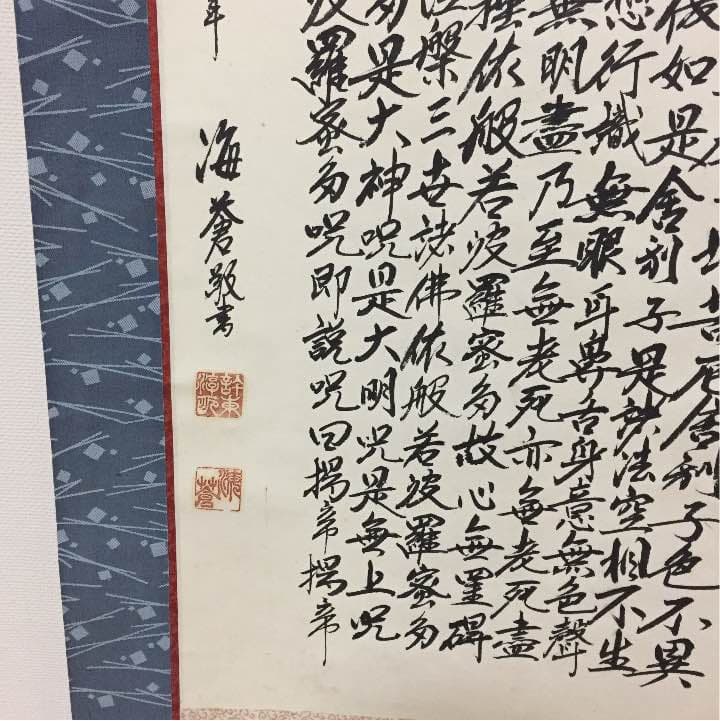 切苦厄舍利子色不異
復如是舍利子是諸法空相不生
想行識無眼耳鼻舌身意無色聲
無明盡乃至無老死亦無老死盡
埵依般若波羅蜜多故心無罣礙
涅槃三世諸佛依般若波羅蜜多
多是大神呪是大明呪是無上呪
波羅蜜多呪即說呪曰揭帝揭帝
年
海蒼敬書
許東